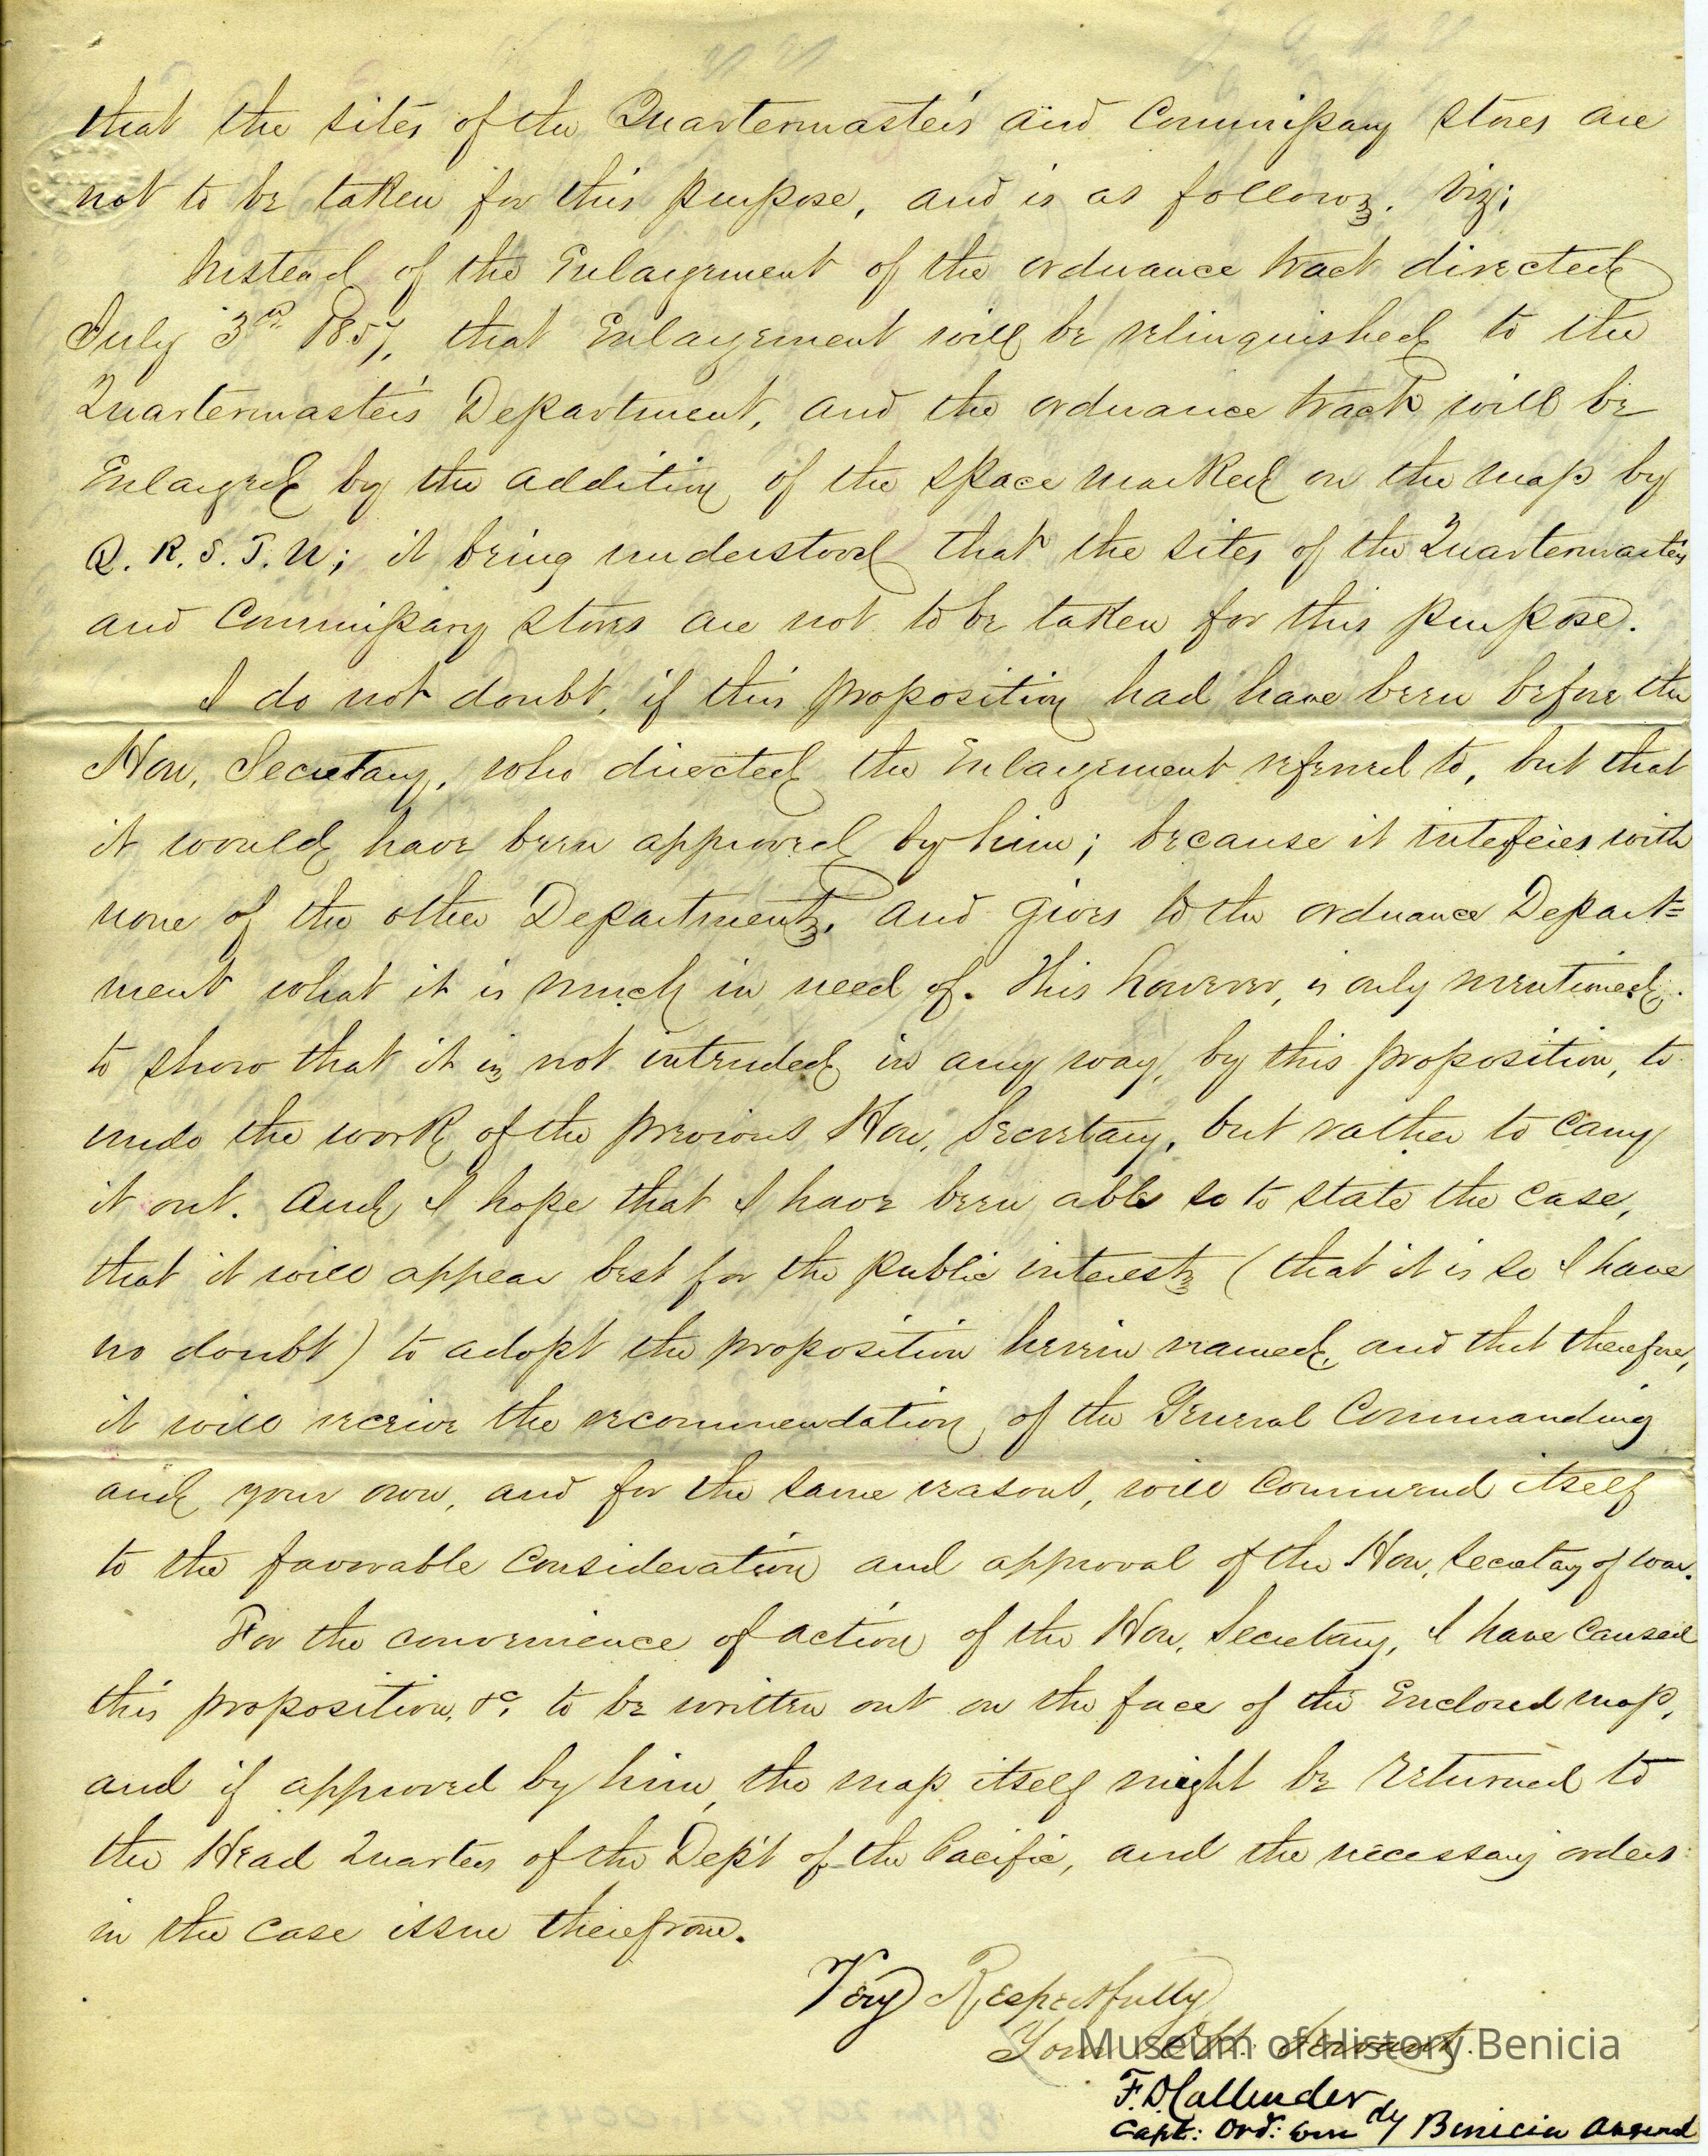 that the sites of the Quartermaster's and Commissary stores are
not to be taken for this purpose, and is as follows. viz;
Instead of the Enlargement of the ordnance tract directed
July 3rd 1857, that Enlargement will be relinquished to the
Quartermaster's Department, and the ordnance track will be
Enlarged by the addition of the space marked on the map by
Q. R. S. T. U; it being understood that the sites of the Quartermasters
and Commissary stores are not to be taken for this purpose.
I do not doubt, if this proposition had have been before the
Hon, Secretary, who directed the Enlargement referred to, but that
it would have been approved by him; because it inteferes with
none of the other Departments, and gives to the ordnance Depart=
ment what it is much in need of. This however, is only mentioned
to show that it is not intended in any way, by this proposition, to
undo the work of the previous Hon, Secretary, but rather to carry
it out. And I hope that I have been able so to state the case,
that it will appear best for the public interests (that it is so I have
no doubt) to adopt the proposition herein named, and that therefore,
it will receive the recommendation of the General Commanding
and your own, and for the same reasons, will commend itself
to the favorable consideration and approval of the Hon, Secretary of war.
For the convenience of action of the Hon, Secretary, I have caused
this proposition, &c. to be written out on the face of the Enclosed map,
and if approved by him, the map itself might be returned to
the Head Quarters of the Dep't of the Pacific, and the necessary orders
in the case issue therefrom.
Very Respectfully
Your Obt. Servant.
Museum of History Benicia
F. D. Callender
Capt: Ord: Comdg Benicia Arsenal